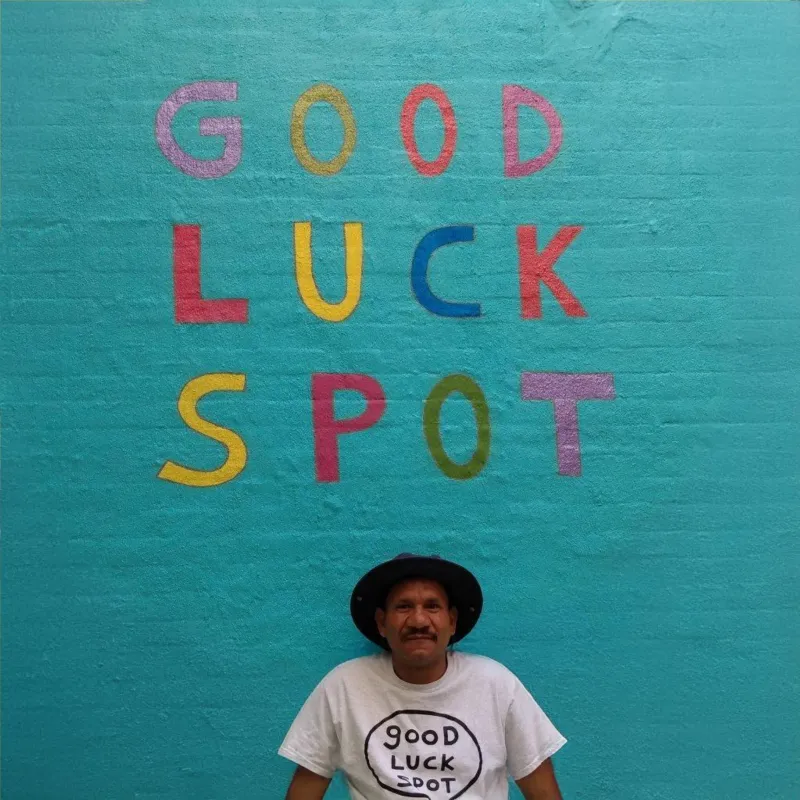 GOOD
LUCK
SPOT
gooD
LUCK
SPOT